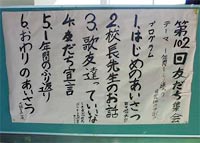 第102回友だち集会
プログラム
1.はじめのあいさつ
2.校長先生のお話
3.歌友達っていいな
4.友だち宣言
5.1年間のふり返り
6.おわりのあいさつ